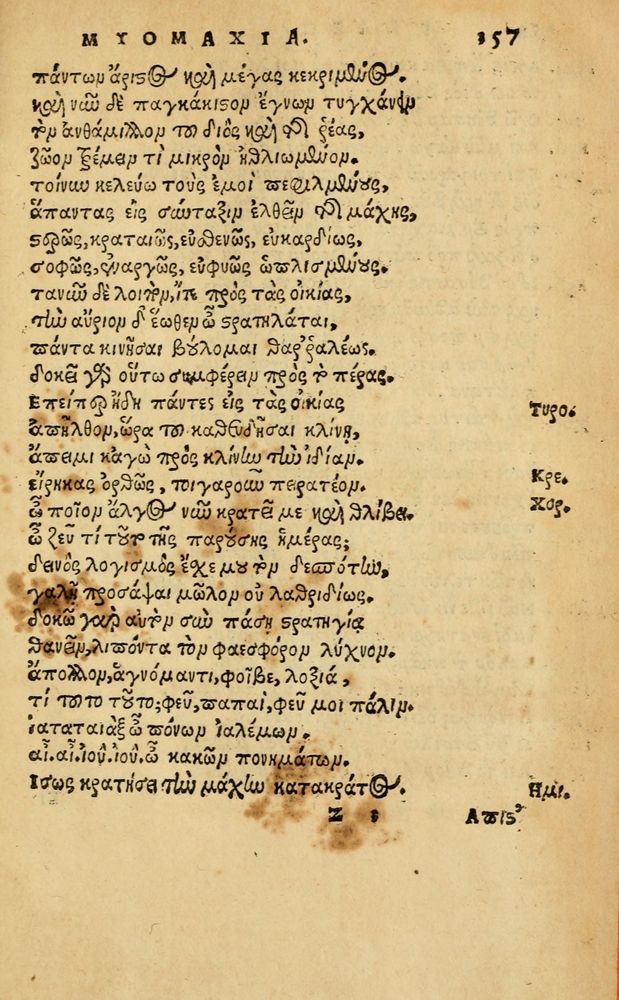 ΜΥΟΜΑΧΙΑ. 157
πάντων ἄριστος καὶ μέγας κεκριμένος.
καὶ νῦν δὲ παγκάκιστον ἔγνων τυγχάνειν
τὸν ἀνθάμιλλον τοῦ διὸς καὶ τῆς ῥέας,
ζῶον τρέμειν τὶ μικρὸν ἠθλιωμένον.
τοίνυν κελεύω τοὺς ἐμοὶ
ἅπαντας εἰς σύνταξιν ἐλθεῖν τῆς μάχης,
στερρῶς, κραταιῶς, εὐσθενῶς, εὐκαρδίως,
σοφῶς, ἐναργῶς, εὐφυῶς ὡπλισμένους.
τανῦν δὲ λοιπὸν, ἴτε πρὸς τὰς οἰκίας,
τὴν αὔριον δ' ἕωθεν ὦ στρατηλάται,
πάντα κινῆσαι βούλομαι θαρῥαλέως.
δοκεῖ γὰρ οὕτω συμφέρειν πρὸς τὸ πέρας.
Επείπερ ἤδη πάντες εἰς τὰς οἰκίας Τυρο.
ἀπῆλθον, ὥρα τοῦ καθευδῆσαι κλίνῃ,
ἄπειμι καγὼ πρὸς κλίνην τὴν ἰδίαν.
εἴρηκας ὀρθῶς, τοιγαροῦν πειρατέον. Κρε.
ὦ ποῖον ἄλγος νῦν κρατεῖ με καὶ θλίβει. Χορ.
ὦ ζεῦ τί τοῦτο τῆς παρούσης ἡμέρας;
δεινὸς λογισμὸς ἔχε μου τὸν δεσπότην,
γαλῇ προσάψαι μῶλον οὐ λαθριδίως.
δοκῶ γὰρ αὐτὸν σὺν πάσῃ στρατηγίᾳ
θανεῖν, λιπόντα τὸν φαεσφόρον λύχνον.
ἄπολλον, ἁγνόμαντι, φοῖβε, λοξιά,
τί ποτο τοῦτο; φεῦ, παπαὶ, φεῦ μοι πάλιν.
ἰαταταιὰξ ὦ πόνων ἰαλέμων.
αἶ. αἶ. ἰοῦ. ἰοῦ. ὦ κακῶν πονημάτων.
Ισως κρατήσει τὴν μάχην κατακράτος. Ημι.
Απιστ